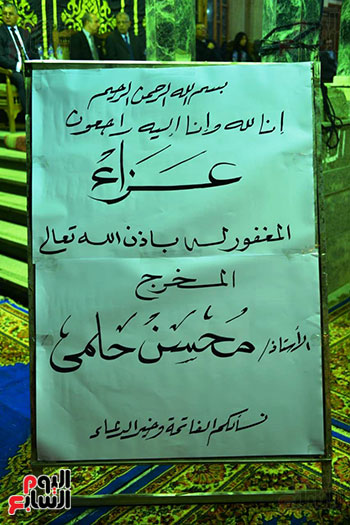 بسم الله الرحمن الرحيم
إنا لله وإنا إليه راجعون
عزاء
المغفور له باذن الله تعالى
المخرج
الأستاذ/ محسن حلمى
نسألكم الفاتحة وخير الدعاء
اليوم
السابع